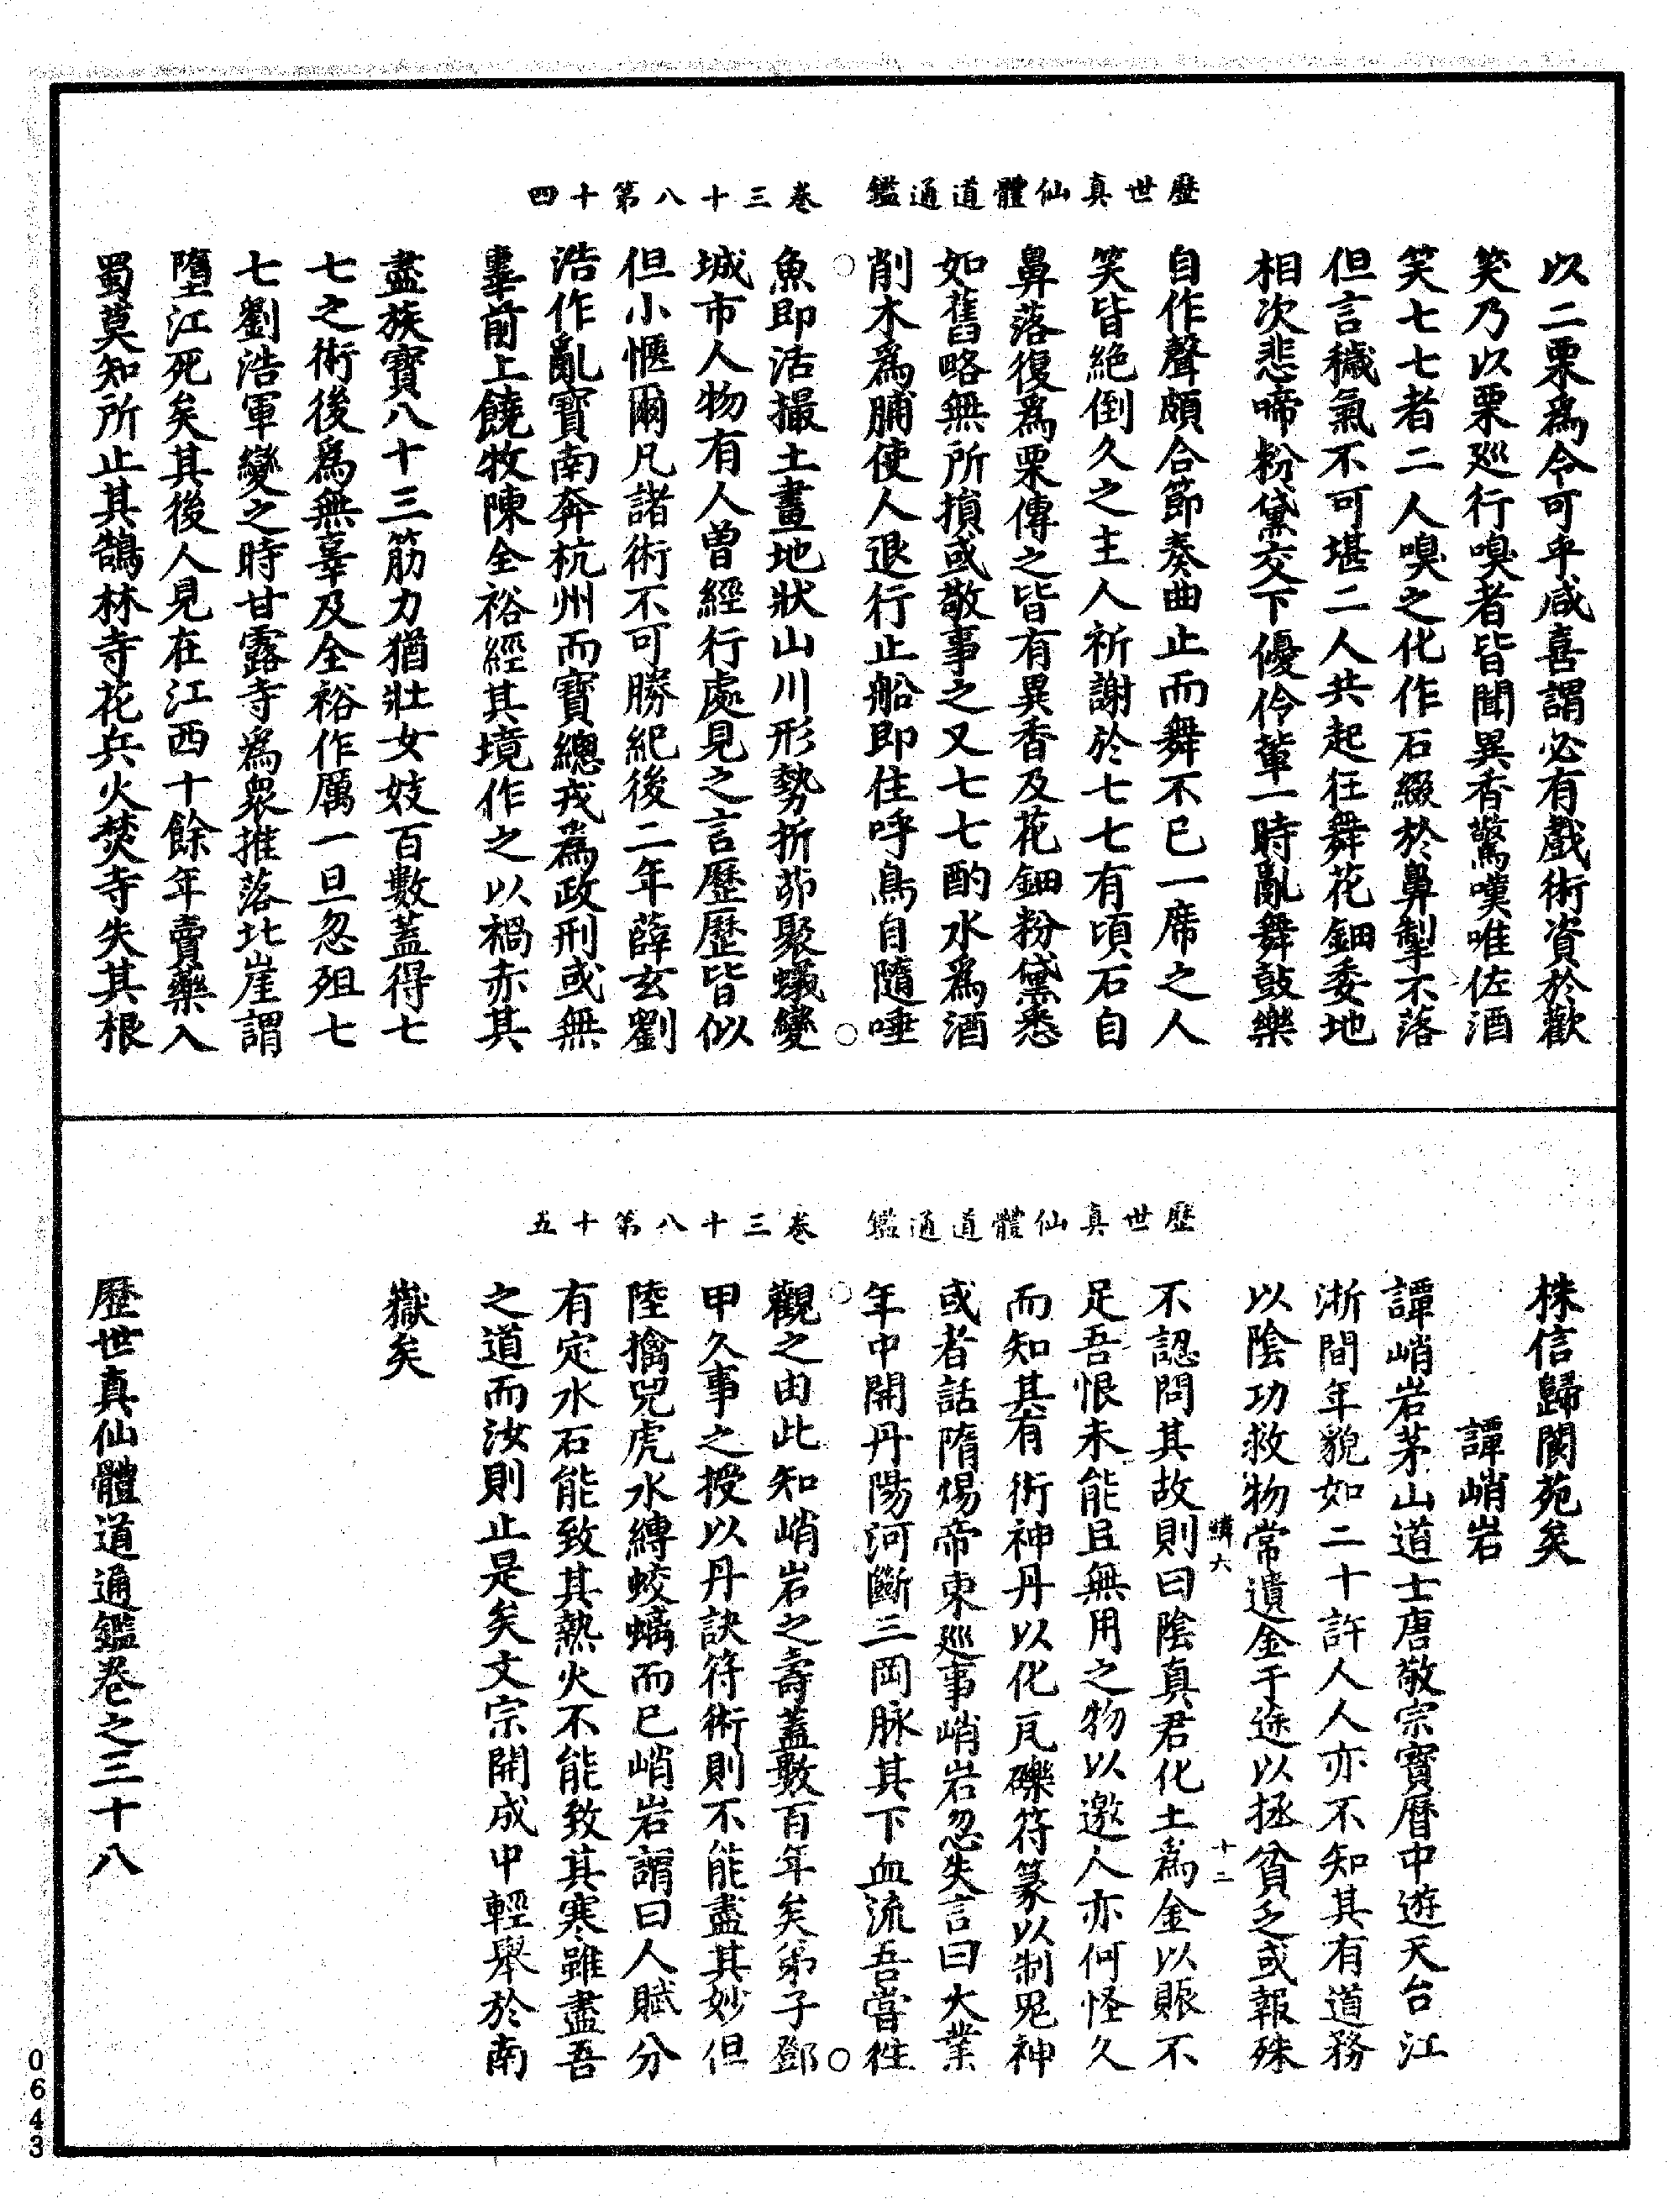 歷世真仙體道通鑑　卷三十八第十四
以二栗爲令可乎咸喜謂必有戲術資於歡
笑乃以栗廵行嗅者皆聞異香驚嘆唯佐酒
笑七七者二人嗅之化作石綴於鼻掣不落
但言穢氣不可堪二人共起狂舞花鈿委地
相次悲啼粉黛交下優伶輩一時亂舞鼓樂
自作聲頗合節奏曲止而舞不已一席之人
笑皆絶倒久之主人祈謝於七七有頃石自
鼻落復爲栗傳之皆有異香及花鈿粉黛悉
如舊略無所損或敬事之又七七酌水爲酒
削木爲脯使人退行止船即住呼鳥自隨唾
魚即活撮土畫地狀山川形勢折茆聚蟻變
城市人物有人曾經行處見之言歷歷皆似
但小愜爾凡諸術不可勝紀後二年薛玄劉
浩作亂寶南奔杭州而寶總戎爲政刑或無
辜前上饒牧陳全裕經其境作之以禍赤其
盡族寶八十三筋力猶壯女妓百數蓋得七
七之術後爲無辜及全裕作厲一旦忽殂七
七劉浩軍變之時甘露寺爲衆推落北崖謂
墮江死矣其後人見在江西十餘年賣藥入
蜀莫知所止其鶴林寺花兵火焚寺失其根
歷世真仙體道通鑑　卷三十八第十五
株信歸閬苑矣
譚峭岩
譚峭岩茅山道士唐敬宗寶曆中遊天台江
浙間年貌如二十許人人亦不知其有道務
以陰功救物常遺金于途以拯貧乏或報殊
十二
不認問其故則曰陰真君化土爲金以賑不
足吾恨未能且無用之物以邀人亦何怪久
而知其有術神丹以化瓦礫符篆以制鬼神
或者話隋煬帝東廵事峭岩忽失言曰大業
年中開丹陽河斷三岡脉其下血流吾嘗往
觀之由此知峭岩之壽蓋數百年矣弟子鄧
甲久事之授以丹訣符術則不能盡其妙但
陸擒兕虎水縛蛟螭而已峭岩謂曰人賦分
有定水石能致其熱火不能致其寒雖盡吾
之道而汝則止是矣文宗開成中輕舉於南
嶽矣
歷世真仙體道通鑑卷之三十八
0643